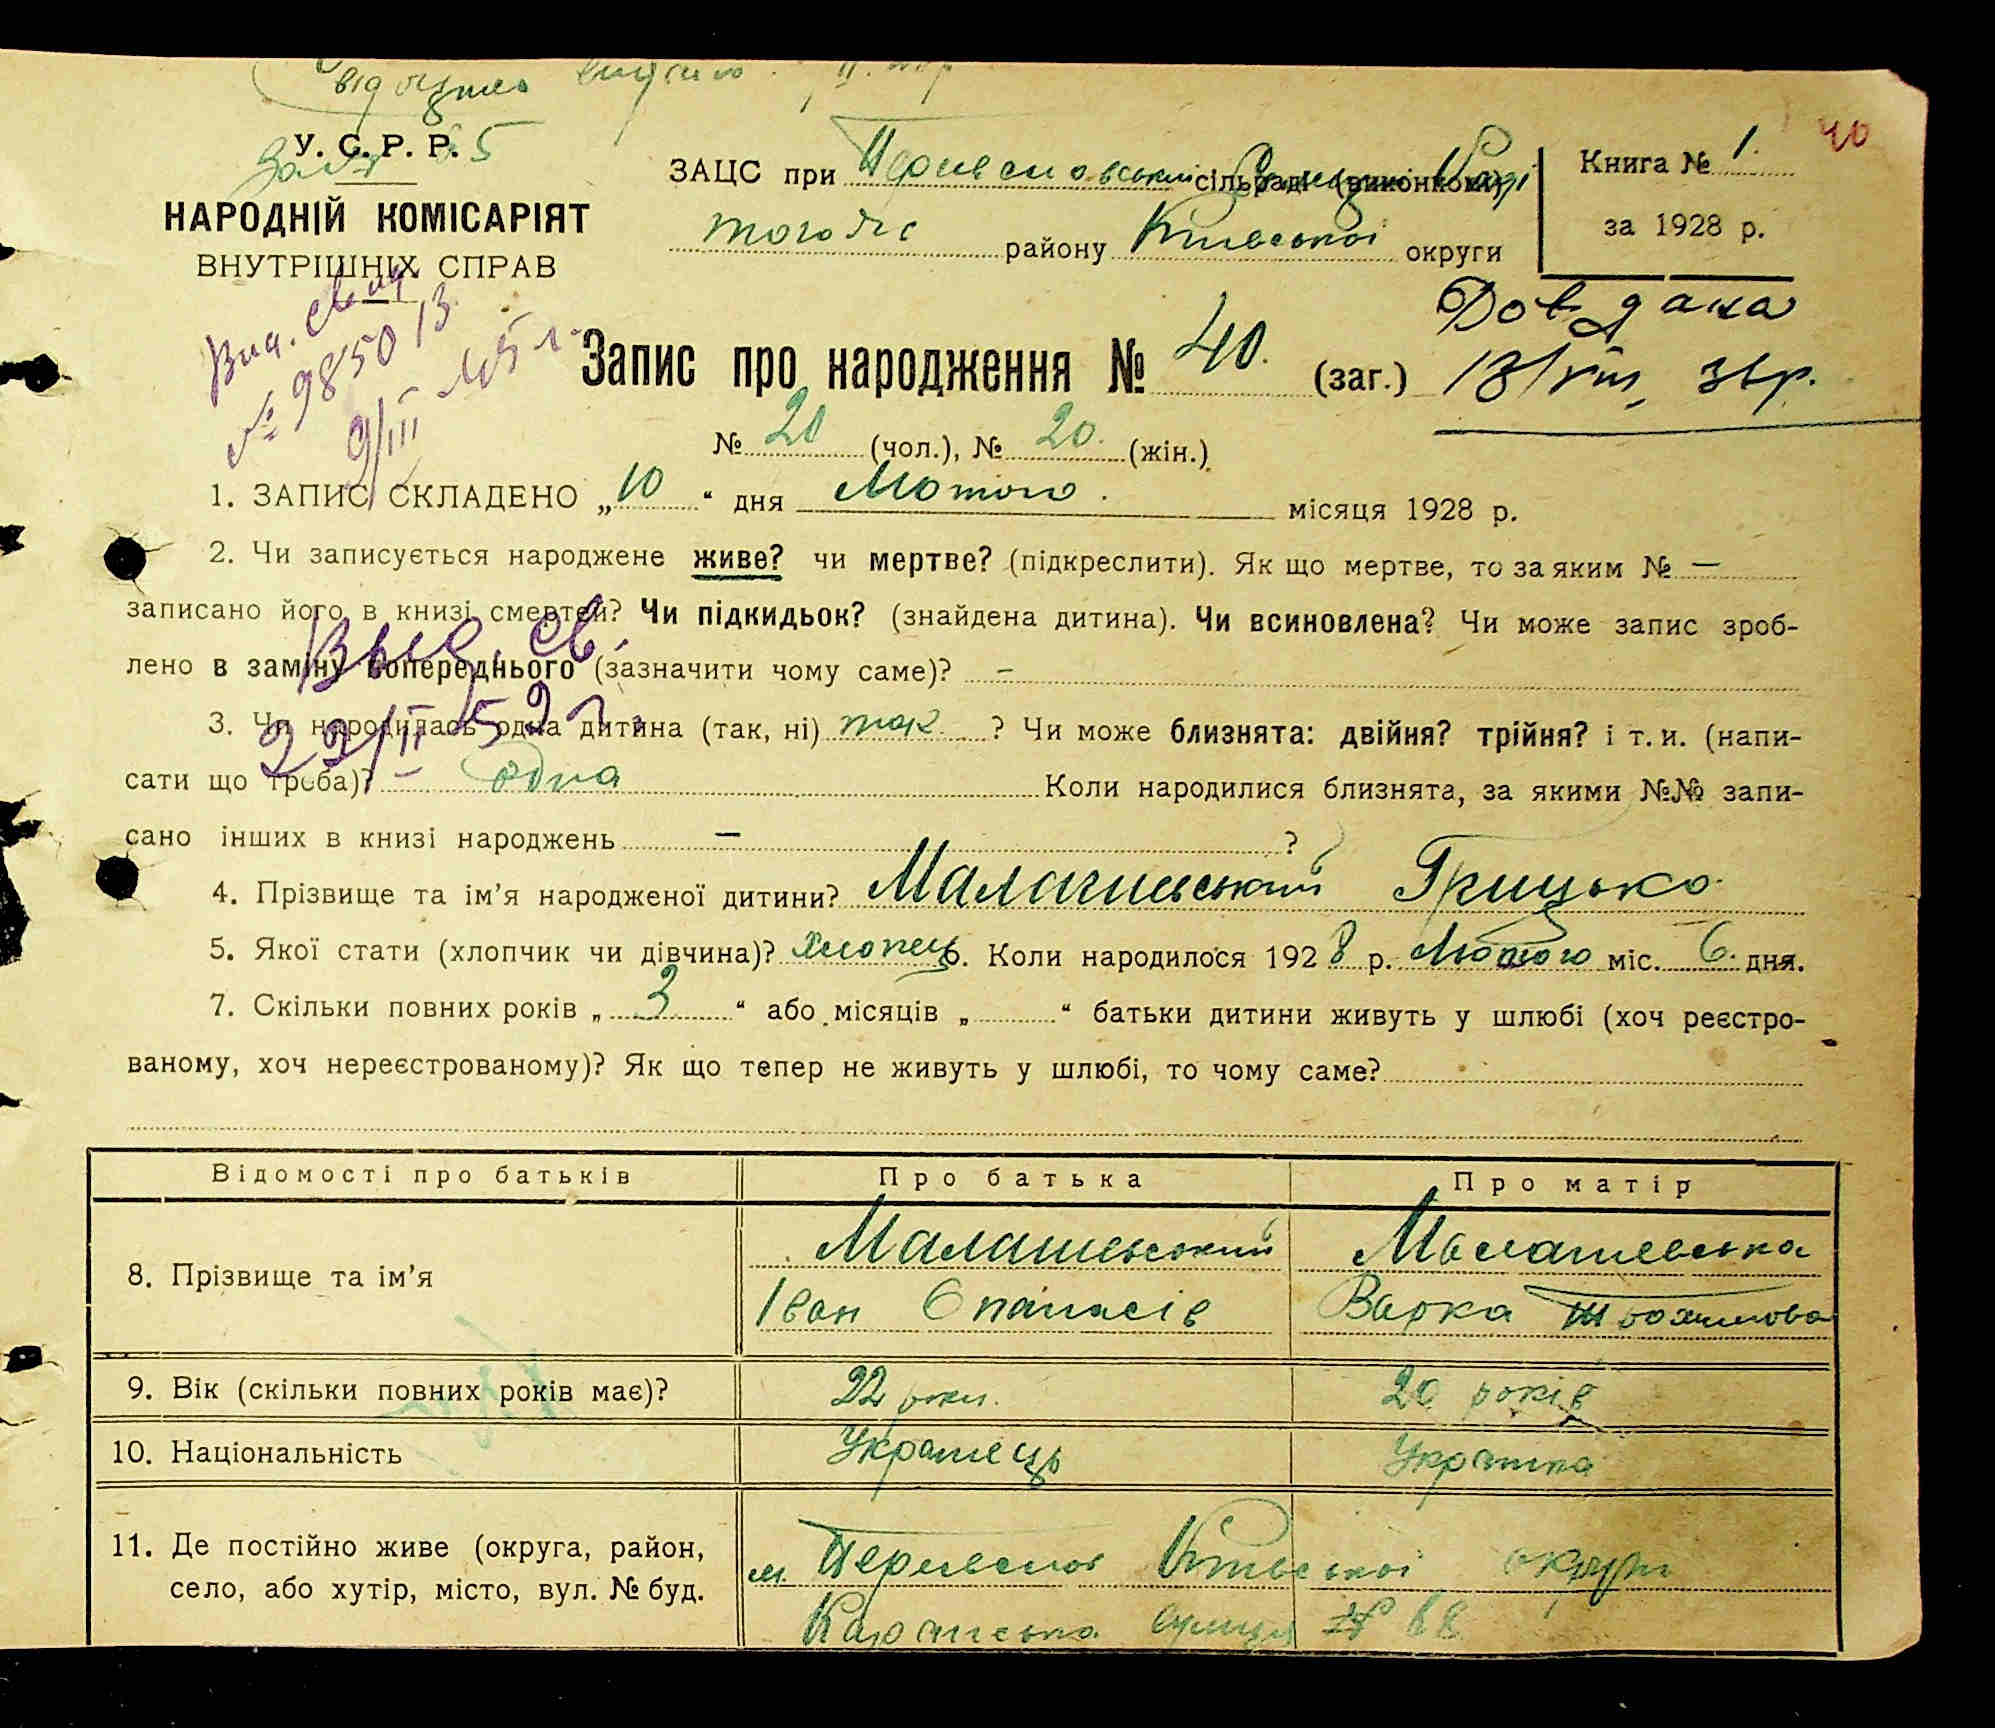 У. С. Р. Р.
НАРОДНІЙ КОМІСАРІЯТ
ВНУТРІШНІХ СПРАВ
ЗАЦС при сільраді (виконкомі)
того ж району Київської округи
Книга № 1.
за 1928 р.
40
Вид. свид.
№ 98850/3
9/III 45 г.
Дов. дана
13/VIII, 3 р.
Запис про народження № 40. (заг.)
№ 20 (чол.), № 20. (жін.)
1. ЗАПИС СКЛАДЕНО „10“ дня Лютого. місяця 1928 р.
2. Чи записується народжене живе? чи мертве? (підкреслити). Як що мертве, то за яким № —
записано його в книзі смертей? Чи підкидьок? (знайдена дитина). Чи всиновлена? Чи може запис зроб-
лено в заміну попереднього (зазначити чому саме)? –
Выд. св.
22/II 52 г.
3. Чи народилась одна дитина (так, ні) так ? Чи може близнята: двійня? трійня? і т. и. (напи-
сати що треба)? – одна Коли народилися близнята, за якими №№ запи-
сано інших в книзі народжень – ?
4. Прізвище та ім’я народженої дитини? Малашевський Грицько
5. Якої стати (хлопчик чи дівчина)? хлопець 6. Коли народилося 1928 р. Лютого міс. 6. дня.
7. Скільки повних років „3“ або місяців „ “ батьки дитини живуть у шлюбі (хоч реєстро-
ваному, хоч нереєстрованому)? Як що тепер не живуть у шлюбі, то чому саме?
Відомості про батьків Про батька Про матір
8. Прізвище та ім’я Малашевський Іван Опанасів Малашевська Варка Трохимова
9. Вік (скільки повних років має)? 22 роки. 20 років
10. Національність Українець Українка
11. Де постійно живе (округа, район,
село, або хутір, місто, вул. № буд.
м. Переяслов Київської округи
вулиця № 88